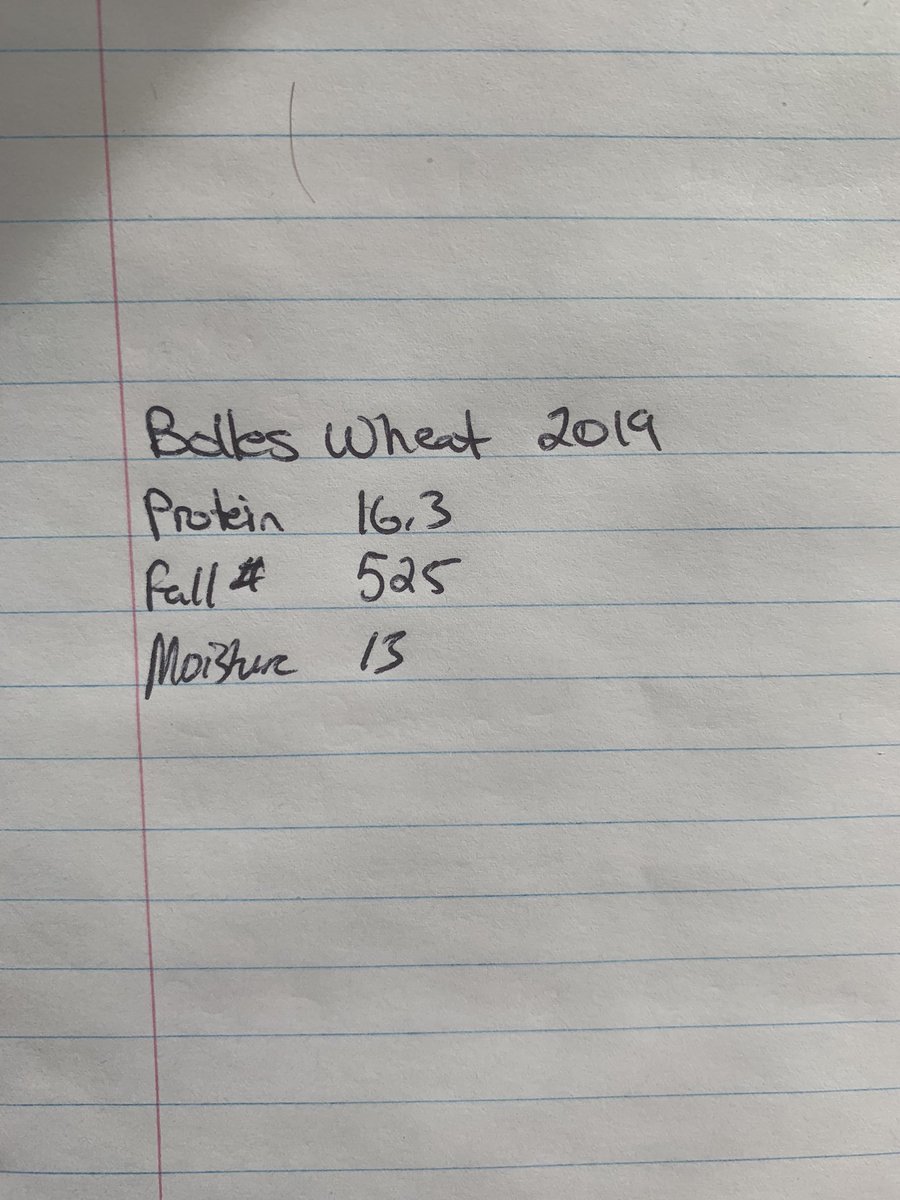 Bolles Wheat 2019
Protein 16.3
Fall # 525
Moisture 13